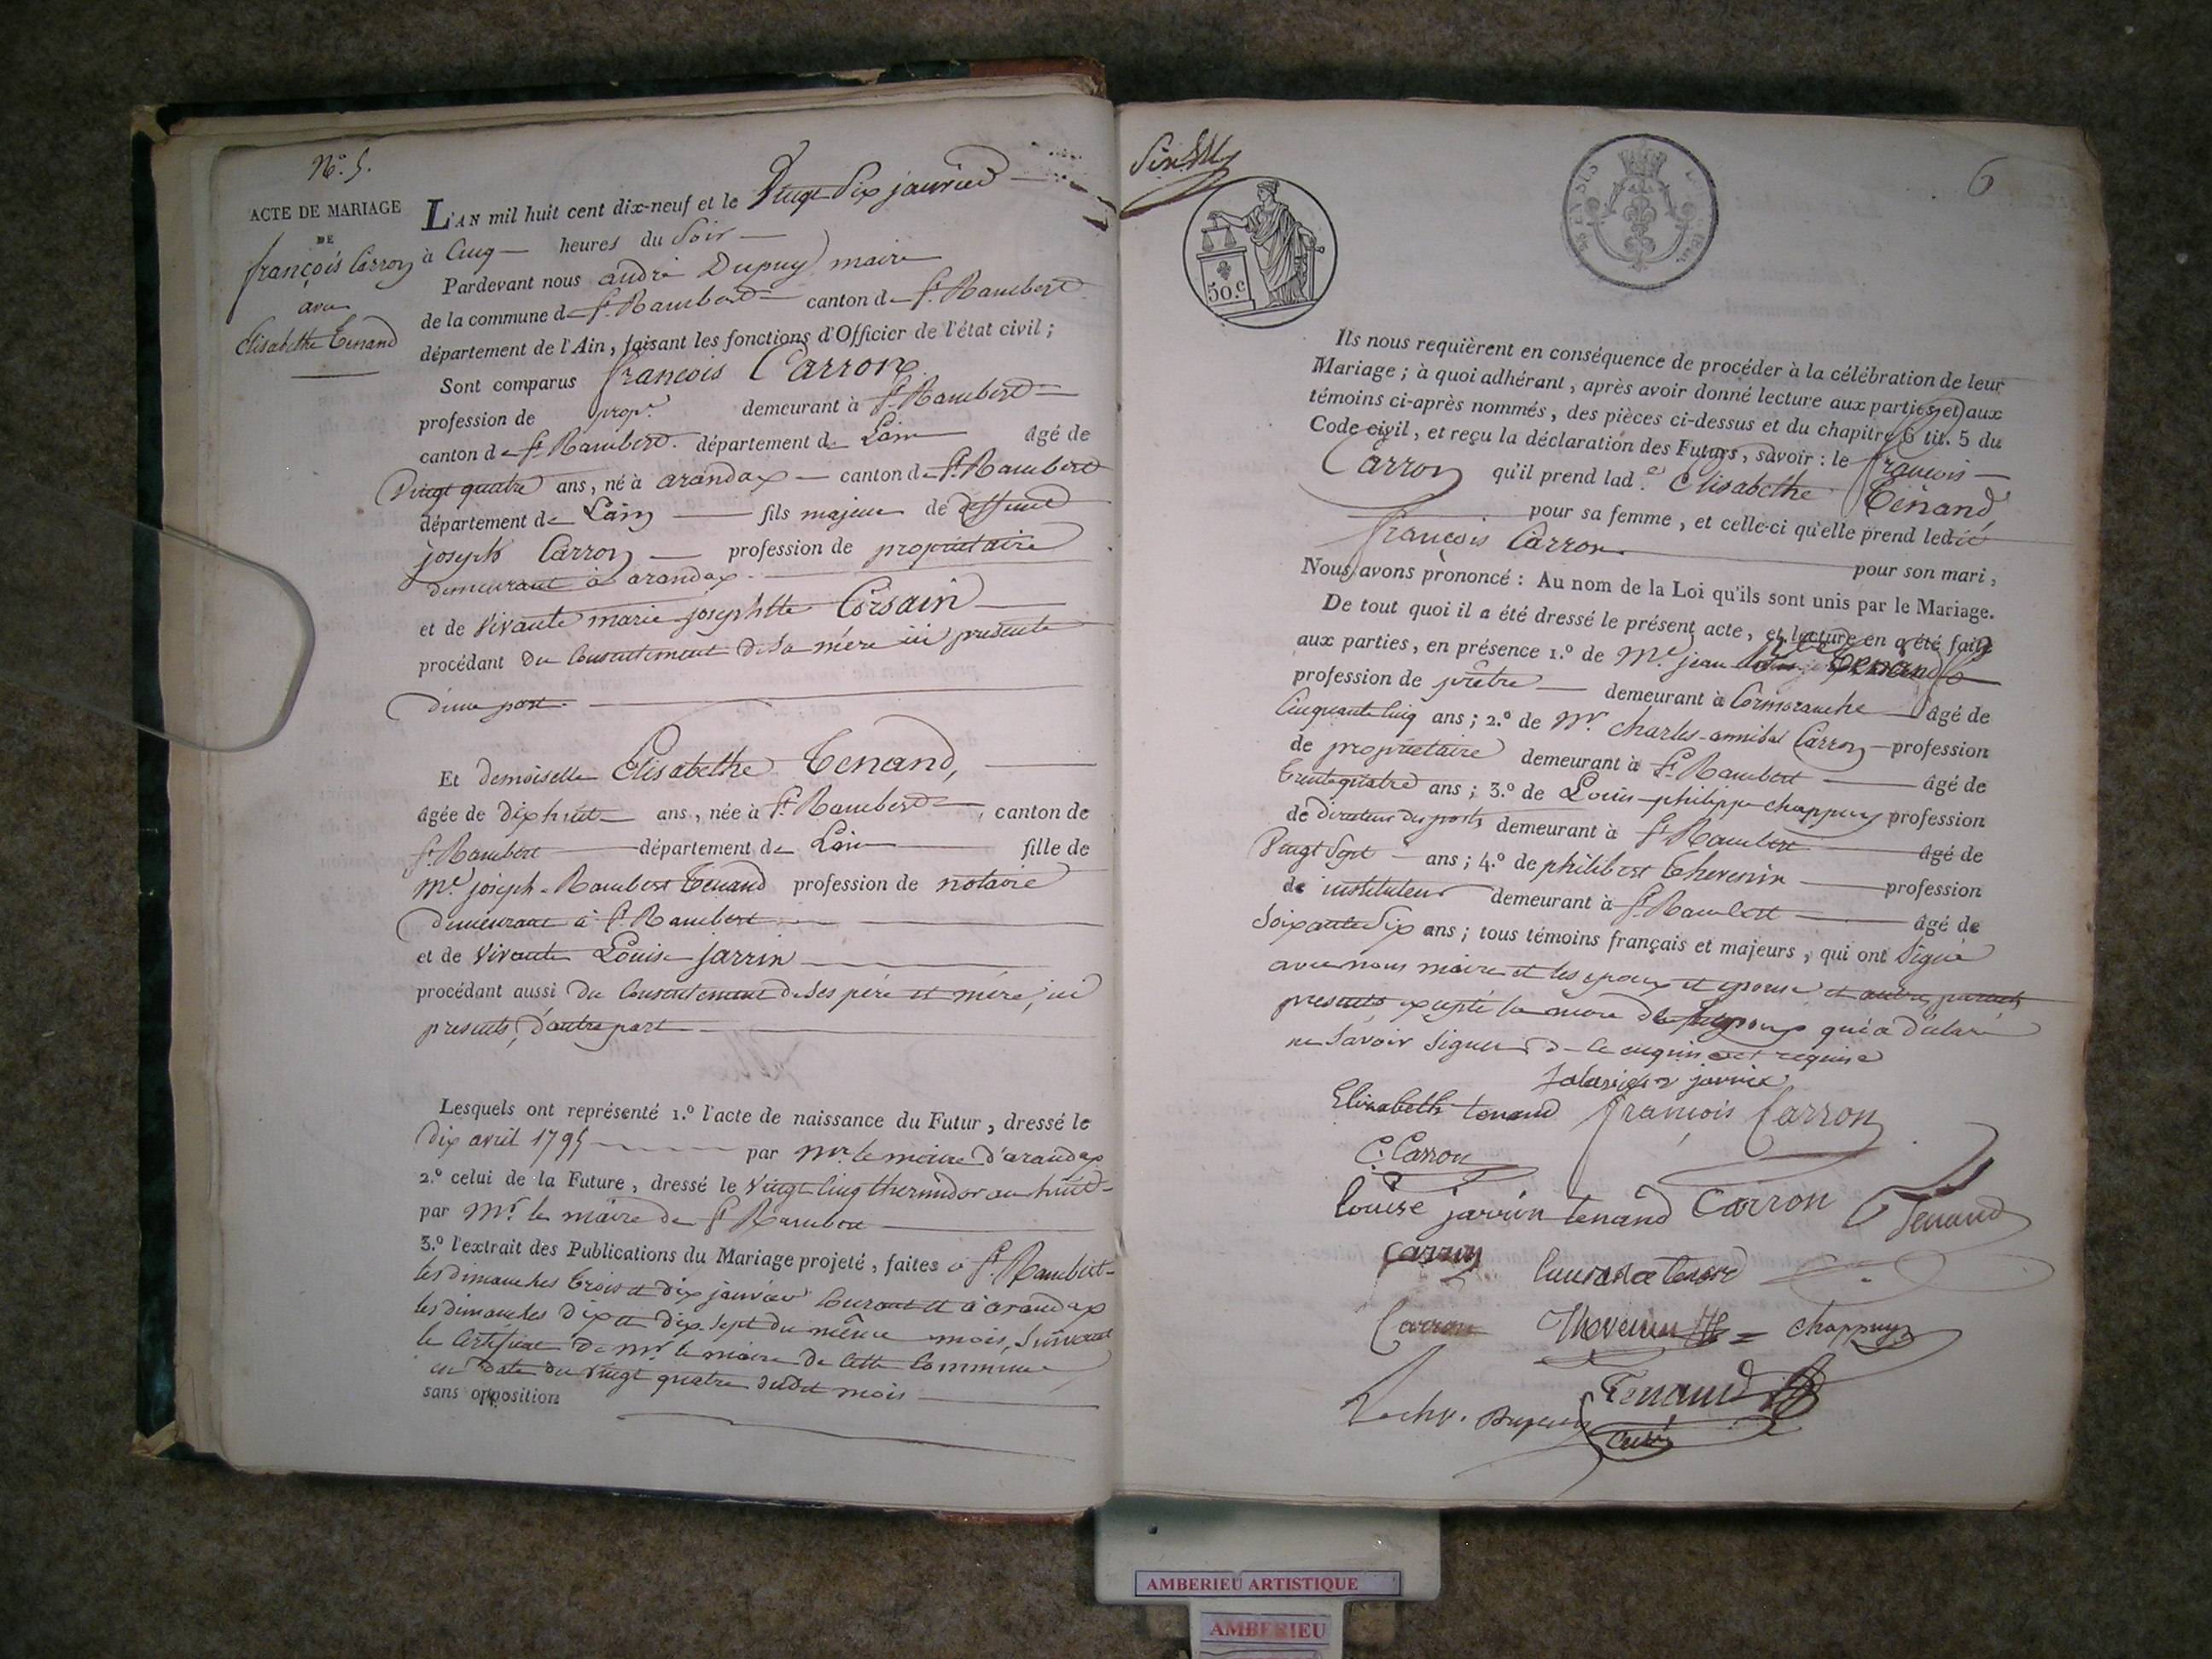 N.º 5.
ACTE DE MARIAGE
DE
françois Carron
avec
Elisabethe Tenand
L'AN mil huit cent dix-neuf et le Vingt Six janvier
à Cinq heures du Soir
Pardevant nous andré Dupuy maire
de la commune de St. Rambert canton de St. Rambert
département de l'Ain, faisant les fonctions d'Officier de l'état civil ;
Sont comparus françois Carron
profession de propre. demeurant à St. Rambert
canton de St. Rambert. département de Lain âgé de
Vingt quatre ans, né à arandax canton de St. Rambert
département de Lain fils majeur de deffunt
joseph Carron profession de propriétaire
demeurant à arandax
et de vivante marie josephtte Corsain
procédant du Consentement de sa mère ici presente
d'une part.
Et demoiselle Elisabethe Tenand,
âgée de dix huit ans, née à St. Rambert, canton de
St. Rambert département de Lain fille de
Me. joseph-Rambert Tenand profession de notaire
demeurant à St. Rambert
et de vivante Louise jarrin
procédant aussi du Consentement de ses père et mère, ici
presents, d'autre part
Lesquels ont représenté 1.º l'acte de naissance du Futur, dressé le
dix avril 1795 par Mr. le maire d'arandax
2.º celui de la Future, dressé le vingt cinq thermidor an huit
par Mr. le maire de St. Rambert
3.º l'extrait des Publications du Mariage projeté, faites à St. Rambert
les dimanches trois et dix janvier Courant et à arandax
les dimanches dix et dix-sept du même mois, Suivant
le Certificat de Mr. le maire de Cette Commune
en date du vingt quatre dudit mois
sans opposition
6
50.c
Ils nous requièrent en conséquence de procéder à la célébration de leur
Mariage ; à quoi adhérant, après avoir donné lecture aux parties et aux
témoins ci-après nommés, des pièces ci-dessus et du chapitre 6 tit. 5 du
Code civil, et reçu la déclaration des Futurs, savoir : le françois
Carron qu'il prend lad.e Elisabethe Tenand,
pour sa femme, et celle-ci qu'elle prend ledit
françois Carron.
pour son mari,
Nous avons prononcé : Au nom de la Loi qu'ils sont unis par le Mariage.
De tout quoi il a été dressé le présent acte, et lecture en a été faite
aux parties, en présence 1.º de Me. jean Tenand
profession de prêtre demeurant à Cormoranche âgé de
Cinquante Cinq ans ; 2.º de Mr. Charles-annibal Carron profession
de propriétaire demeurant à St. Rambert âgé de
trente quatre ans ; 3.º de Louis-philippe chappuy profession
de directeur des posts demeurant à St. Rambert âgé de
Vingt Sept ans ; 4.º de philibert thevenin profession
de instituteur demeurant à St. Rambert âgé de
Soixante Six ans ; tous témoins français et majeurs, qui ont Signé
avec nous maire et les epoux et epouse et autres parents
presents, excepté la mère de l'epoux qui a déclaré
ne Savoir Signer de ce enquise et requise
Elizabeth tenand françois Carron
C. Carron
Louise jarrin tenand Carron Tenand
Carron
Carron Thevenin = Chappuy
Tenand
Dupuy
Curé
AMBERIEU ARTISTIQUE
AMBERIEU